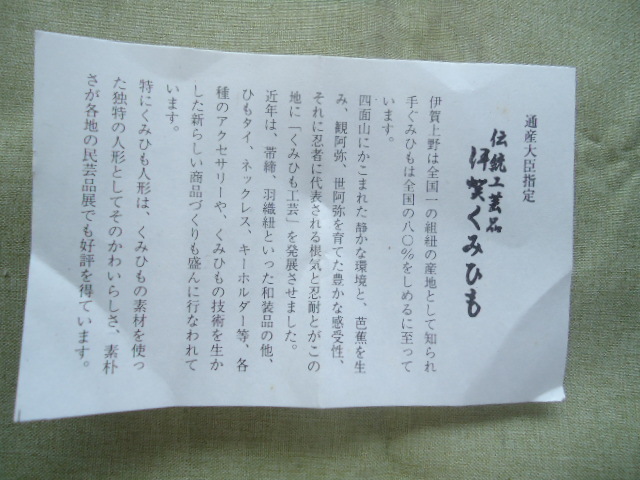 通産大臣指定
伝統工芸品
伊賀くみひも
伊賀上野は全国一の組紐の産地として知られ
手ぐみひもは全国の八〇%をしめるに至って
います。
四面山にかこまれた静かな環境と、芭蕉を生
み、観阿弥、世阿弥を育てた豊かな感受性、
それに忍者に代表される根気と忍耐とがこの
地に「くみひも工芸」を発展させました。
近年は、帯締、羽織紐といった和装品の他、
ひもタイ、ネックレス、キーホルダー等、各
種のアクセサリーや、くみひもの技術を生か
した新らしい商品づくりも盛んに行なわれて
います。
特にくみひも人形は、くみひもの素材を使っ
た独特の人形としてそのかわいらしさ、素朴
さが各地の民芸品展でも好評を得ています。